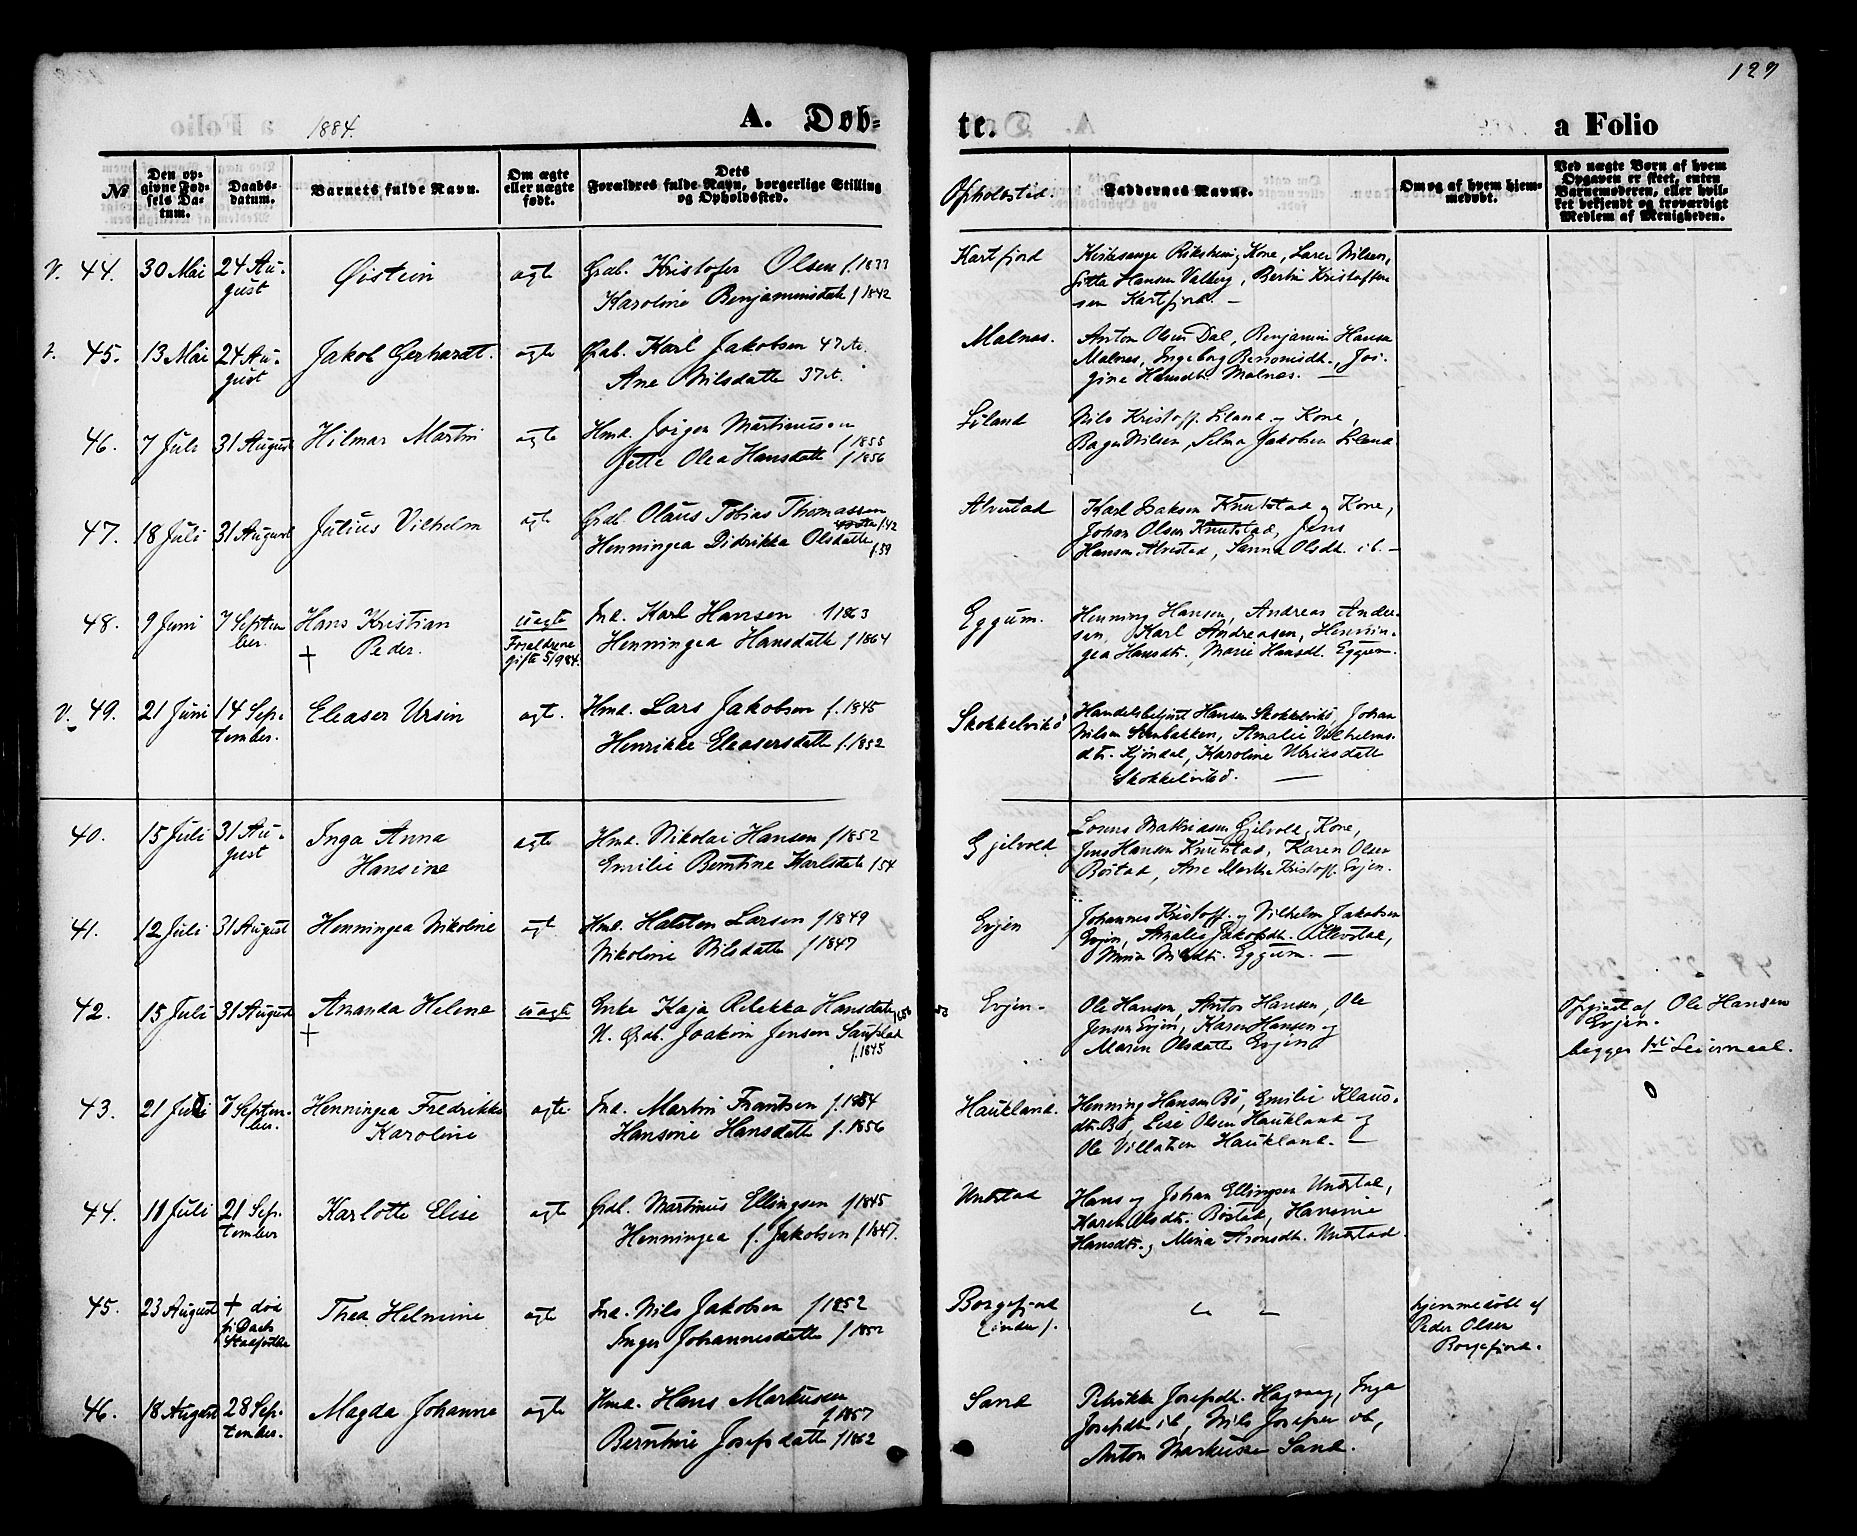 127
1884.
A. Døb-
te.
a Folio
No
Den op-
givne Fød-
sels Da-
tum.
Daabs-
datum.
Barnets fulde Navn.
Om ægte
eller uægte
født.
Dets
Forældres fulde Navn, borgerlige Stilling
og Opholdssted.
Opholdsted.
Faddernes Navne.
Om og af hvem hjem-
medøbt.
Ved uægte Børn af hvem
Opgaven er skeet, enten
Barnemoderen, eller hvil-
ket bekjendt og troværdigt
Medlem af Menigheden.
V. 44. 30 Mai 24 Au-
gust
Øistein
ægte
Grdb. Kristofer Olsen f. 1833
Karoline Benjaminsdatt f 1842
Kartfjord
Kirkesanger Kone, Lars Nilsen,
Gitta Hansen Valberg, Bertin Kristoffer
sen Kartfjord. —
45. 13 Mai 24 Au-
gust
Jakob Gerhardt.
ægte
Grdb. Karl Jakobsen 47 Ar.
Ane Nilsdatte 37 A.
Malnes.
Anton Olsen Dal, Benjamin Hansen
Malnes, Ingeborg Jo-
gine Hansdt. Malnes. —
46. 7 Juli 31 August
Hilmar Martin
ægte
Hmd. Jørgen Martinussen
f 1855
Jette Olea Hansdatte f 1856
Liland
Nils Kristoff. Liland og Kone,
Nilsen, Selma Jakobsen Liland
47. 18 Juli 31 August
Julius Vilhelm
ægte
Grdb. Olaus Tobias Thomassen
f. 42
Henningea Didrikka Olsdatte
f. 59
Alvestad
Karl Isaksen Knutstad og Kone,
Johan Olsen Knutstad, Jens
Hansen Alvestad, Sanna Olsdt. ib. —
48. 9 Juni 7 Septem
ber.
Hans Kristian
† Peder.
uægte
Forældrene
gifte 5/9 84.
Ind. Karl Hansen f 1863
Henningea Hansdatte f 1864
Eggum.
Henning Hansen, Andreas Ander-
sen, Karl Andreasen, Hennin-
gea Hansdt., Marie Hansdt. Eggum.
V. 49. 21 Juni 14 Sep-
tember.
Eleaser Ursin
ægt.
Hmd. Lars Jakobsen f. 1845
Henrikke Eleasersdatte f. 1852
Skokkelvikø
Handelsbetjent Hansen Skokkelvikø, Johan
Nilsen Stenbakken, Amalie Vilhelms-
dt. Kjøndal, Karoline Ulriksdatte
Skokkelvikø. —
40. 15 Juli 31 Au-
gust
Inga Anna
Hansine
ægte
Hmd. Nikolai Hansen f 1852
Emilie Berntine Karlsdatt f 54
Gjelvold
Lorens Mathiasen Gjelvold, Kone,
Jens Hansen Knutstad, Karen Olsen
Bøstad, Ane Marthe Kristoff. Evjen.
41. 12 Juli 31 August
Henningea Nikoline
ægt.
Hmd. Halsten Larsen f 1849
Nikoline Nilsdatte f 1847
Evjen
Johannes Kristoff. og Vilhelm Jakobsen
Evjen, Amalie Jakobsdt.
Nilsdt. Eggum. —
42. 15 Juli 31 August
Amanda Helene
†
uægte
Enke Kaja Rebekka Hansdatte
N. Grdb. Joakim Jensen
f. 1845
Evjen.
Ole Hansen, Anton Hansen, Ole
Jensen Evjen, Karen Hansen og
Maren Olsdatte Evjen
Opgivet af Ole Hansen
Evjen.
begges 1ste Leiermaal.
43. 21 Juli 7 Septem-
ber.
Henningea Fredrikke
Karoline
ægte
Ind. Martin Frantsen f. 1854
Hansine Hansdatte f. 1856
Haukland.
Henning Hansen Bø, Emilie Klaus-
dt. Bø, Lise Olsen Haukland og
Ole Villatsen Haukland. —
44. 11 Juli 21 Sep-
tember
Karlotte Elise
ægte
Grdb. Martinus Ellingsen f 1845
Henningea f. Jakobsen f 1847.
Unstad
Hans og Johan Ellingsen Unstad,
Karen Olsdt. Bøstad, Hansine
Hansdt. og Mina Aronsdt. Unstad.
45. 23 August † død
før Daab
Stadfæstelse
Thea Helmine
ægte
Ind. Nils Jakobsen f 1852
Inger Johannesdatte f 1852
Borgefjord
(indre).
hjemmedøbt af
Peder Olsen
Borgefjord.
46. 18 August 28 Sep-
tember.
Magda Johanne
ægte
Hmd. Hans Markusen
f 1857
Berntine Josefsdatte f 1862
Sand
Petrikke Josefsdt. Hagvaag, Inga
Josefsdt ib, Nils Josefsen ib,
Anton Markusen Sand.